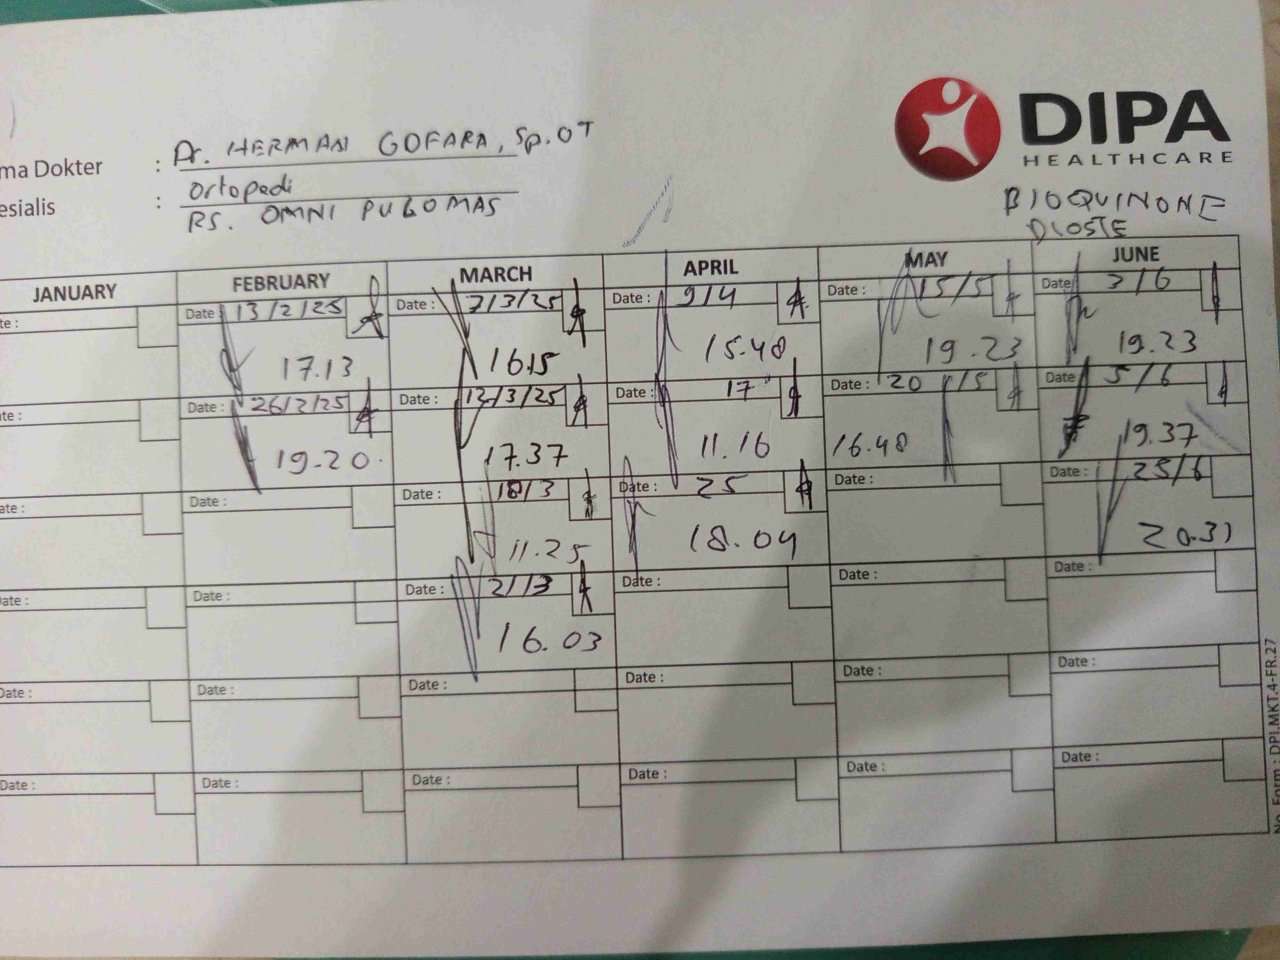 DIPA
HEALTHCARE
ma Dokter : Dr. HERMAN GOFARA, Sp.OT
esialis : Ortopedi
RS. OMNI PULOMAS
BIOQUINONE
DIOSTE
JANUARY FEBRUARY MARCH APRIL MAY JUNE
te: Date 13/2/25 Date : 7/3/25 Date : 9/4 Date : 15/5 Date 3/6
17.13 16.15 15.48 19.23 19.23
te: Date : 26/2/25 Date : 12/3/25 Date : 17 Date : 20/5 Date 5/6
19.20 17.37 11.16 16.48 19.37
ate : Date : Date : 18/3 Date : 25 Date : 25/6
11.25 18.04 20.31
ate : Date : Date : 21/3 Date : Date : Date :
16.03
Date : Date : Date : Date : Date : Date :
Date : Date : Date : Date : Date : Date :
No. Form : DPI.MKT.4-FR.27